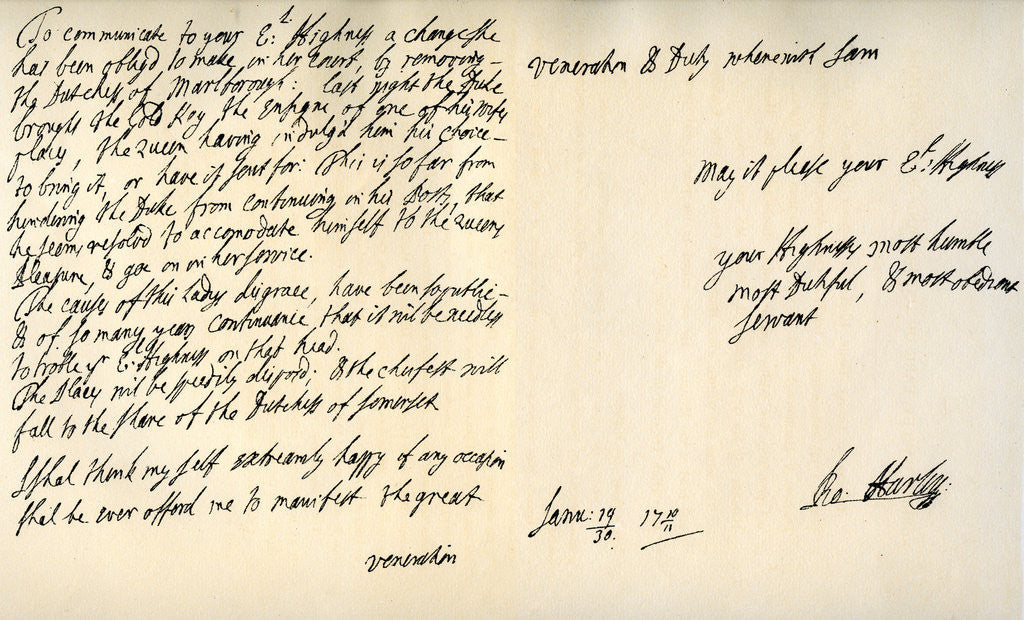 To communicate to your E:^l. Highness a change she
has been obligd to make, in her Court, by removing -
the Dutchess of Marlborough: last night the Duke
brought the Gold Key, the Ensigne of one of his Wifes
places, the Queen having indulg'd him his choice -
to bring it, or have it sent for: This is so far from
hindering the Duke from continuing in his Posts, that
he seems resolvd to accomodate himself to the Queens
Pleasure, & goe on in her service.
The causes of this Ladys disgrace, have been so public -
& of so many years continuance, that it wil be needless
to troble y^r E:^l Highness on that head.
The Places wil be speedily disposd; & the cheifest will
fall to the share of the Dutchess of Somerset
I shal think my self extreamly happy if any occasion
shal be ever offord me to manifest the great
veneration
veneration & Duty wherewith I am
May it please your E^l: Highness
your Highness's most humble
most Dutiful, & most obedient
servant
Ro. Harley:
Janu: 19/30. 17 10/11